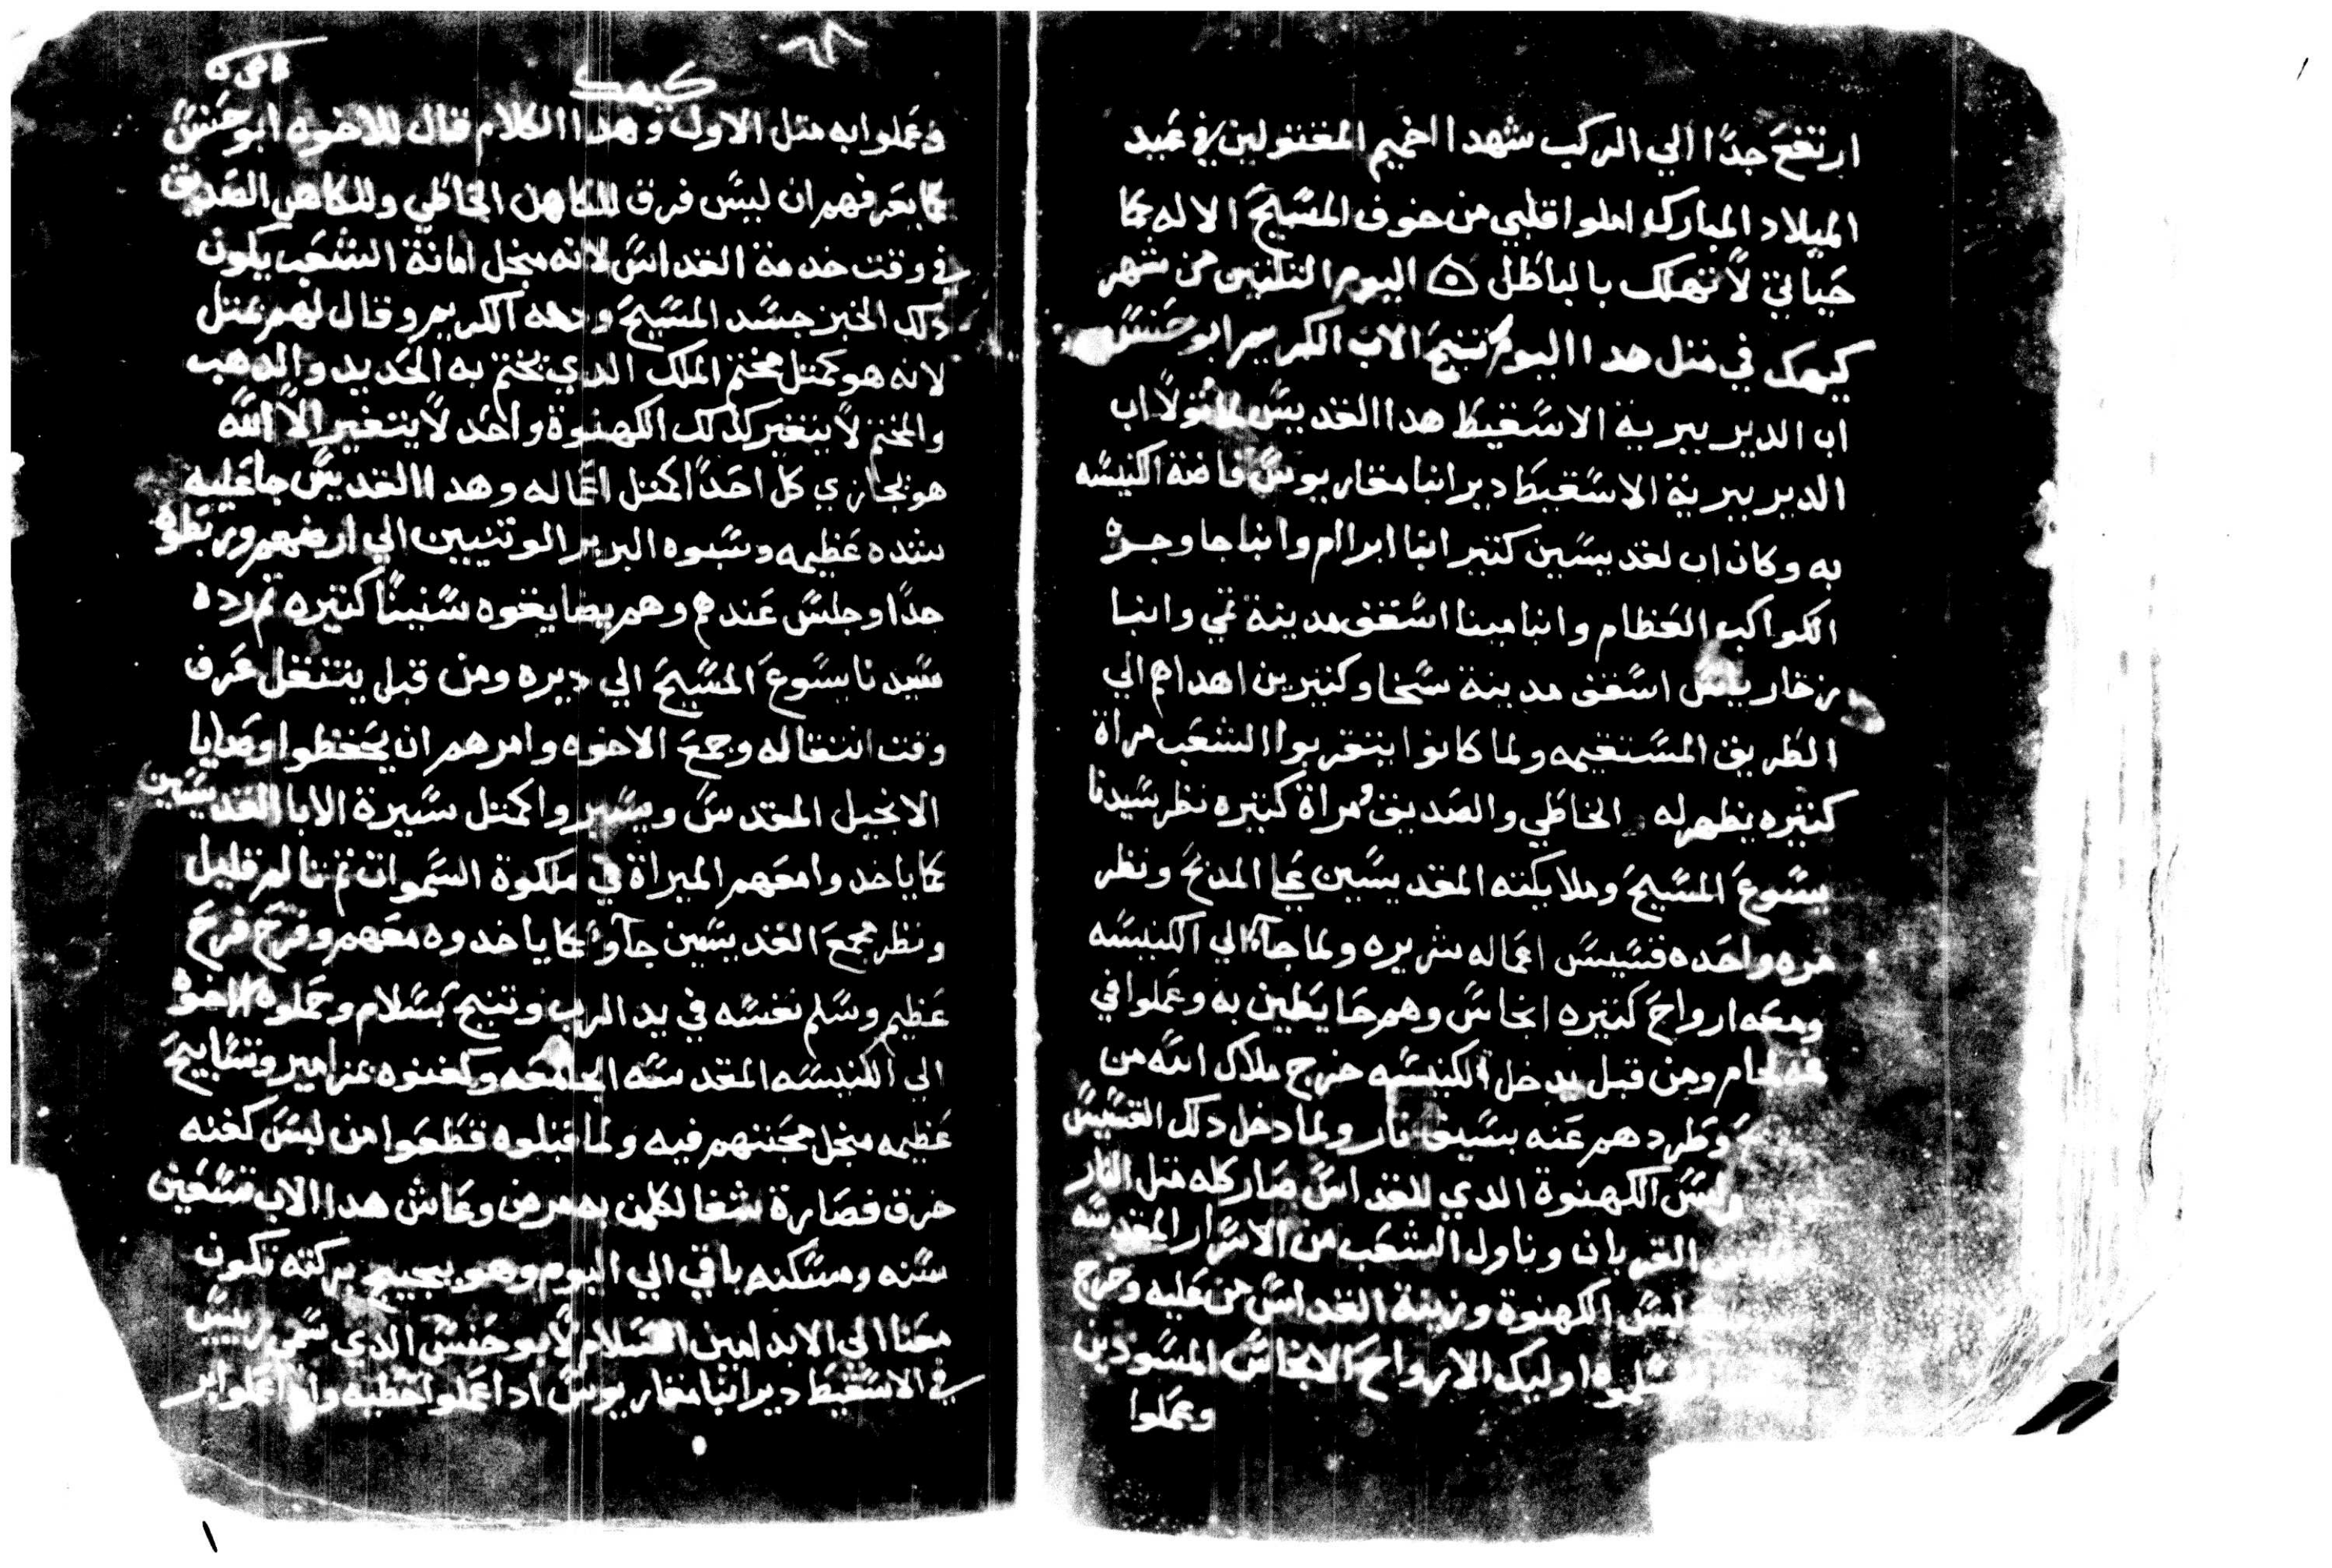 ارتفع جدًا الي الركب شهدا اخميم المقتولين في عيد
الميلاد المبارك املوا قلبي من خوف المسيح الاله كما
حياتي لا تهلك بالباطل ۞ اليوم التلتين من شهر
كيهك في متل هدا اليوم تنيح الاب الكريم ابو حنس
اب الدير ببرية الاسقيط هدا القديس اب
الدير ببرية الاسقيط دير انبا مقاريوس الكنيسه
به وكان اب لقديسين كتير انبا ابراام وانبا جاوجره
الكواكب العظام وانبا مينا اسقف مدينة تمي وانبا
زخارياس اسقف مدينة سخا وكتيرين اهداهم الي
الطريق المستقيمه ولما كانوا يتقربوا الشعب مراة
كتيره يظهر له الخاطي والصديق ومراة كتيره نظر سيدنا
يسوع المسيح وملايكته المقديسين على المدبح ونظر
مره واحده قسيس اعماله شريره ولما جآ الي الكنيسه
ومعه ارواح كتيره انجاس وهم حايطين به وعملوا في
فمه لجام ومن قبل يدخل الكنيسه خرج ملاك الله من
وطردهم عنه بسيف نار ولما دخل دلك القسيس
ولبس الكهنوة الدي للقداس صار كله متل النار
القربان وناول الشعب من الاسرار المقدسه
لبس الكهنوة وزينة القداس من عليه وخرج
اوليك الارواح الانجاس المسودين
وعملوا
٦٨
كيهك
وعملوا به متل الاول وهدا الكلام قال للاخوه ابو حنس
كما يعرفهم ان ليس فرق للكاهن الخاطي وللكاهن الصديق
في وقت خدمة القداس لانه منجل امانة الشعب يكون
دلك الخبز جسد المسيح ودمه الكريم وقال لهم متل
لانه هو كمتل مختم الملك الدي يختم به الحديد والدهب
والمختم لا يتغير كدلك الكهنوة واحد لا يتغير الا الله
هو يجازي كل احدًا كمتل اعماله وهدا القديس جا عليه
شده عظيمه وسبوه البربر الوتنيين الي ارضهم وربطوه
جدًا وجلس عندهم وهم يضايقوه سنينًا كتيره تم رده
سيدنا يسوع المسيح الي ديره ومن قبل يتنقل عرف
وقت انتقاله وجمع الاخوه وامرهم ان يحفظوا وصايا
الانجيل المقدس ويسيروا كمتل سيرة الابا القديسين
كما ياخدوا معهم الميراة في ملكوة السموات تم تالم قليل
ونظر مجمع القديسين جآو كما ياخدوه معهم وفرح فرح
عظيم وسلم نفسه في يد الرب وتنيح بسلام وحملوه الاخوه
الي الكنيسه المقدسه الجامعه وكفنوه بمزامير وتسابيح
عظيمه منجل محبتهم فيه ولما قبلوه قطعوا من لبس كفنه
خرق فصارة شفا لكلمن به مرض وعاش هدا الاب تسعين
سنه ومسكنه باقي الي اليوم وهو بيجيج بركته تكون
معنا الي الابد امين السلام لابو حنس الدي سمي رييس
في الاسقيط دير انبا مقاريوس ادا عملوا خطيه وادا عملوا بر